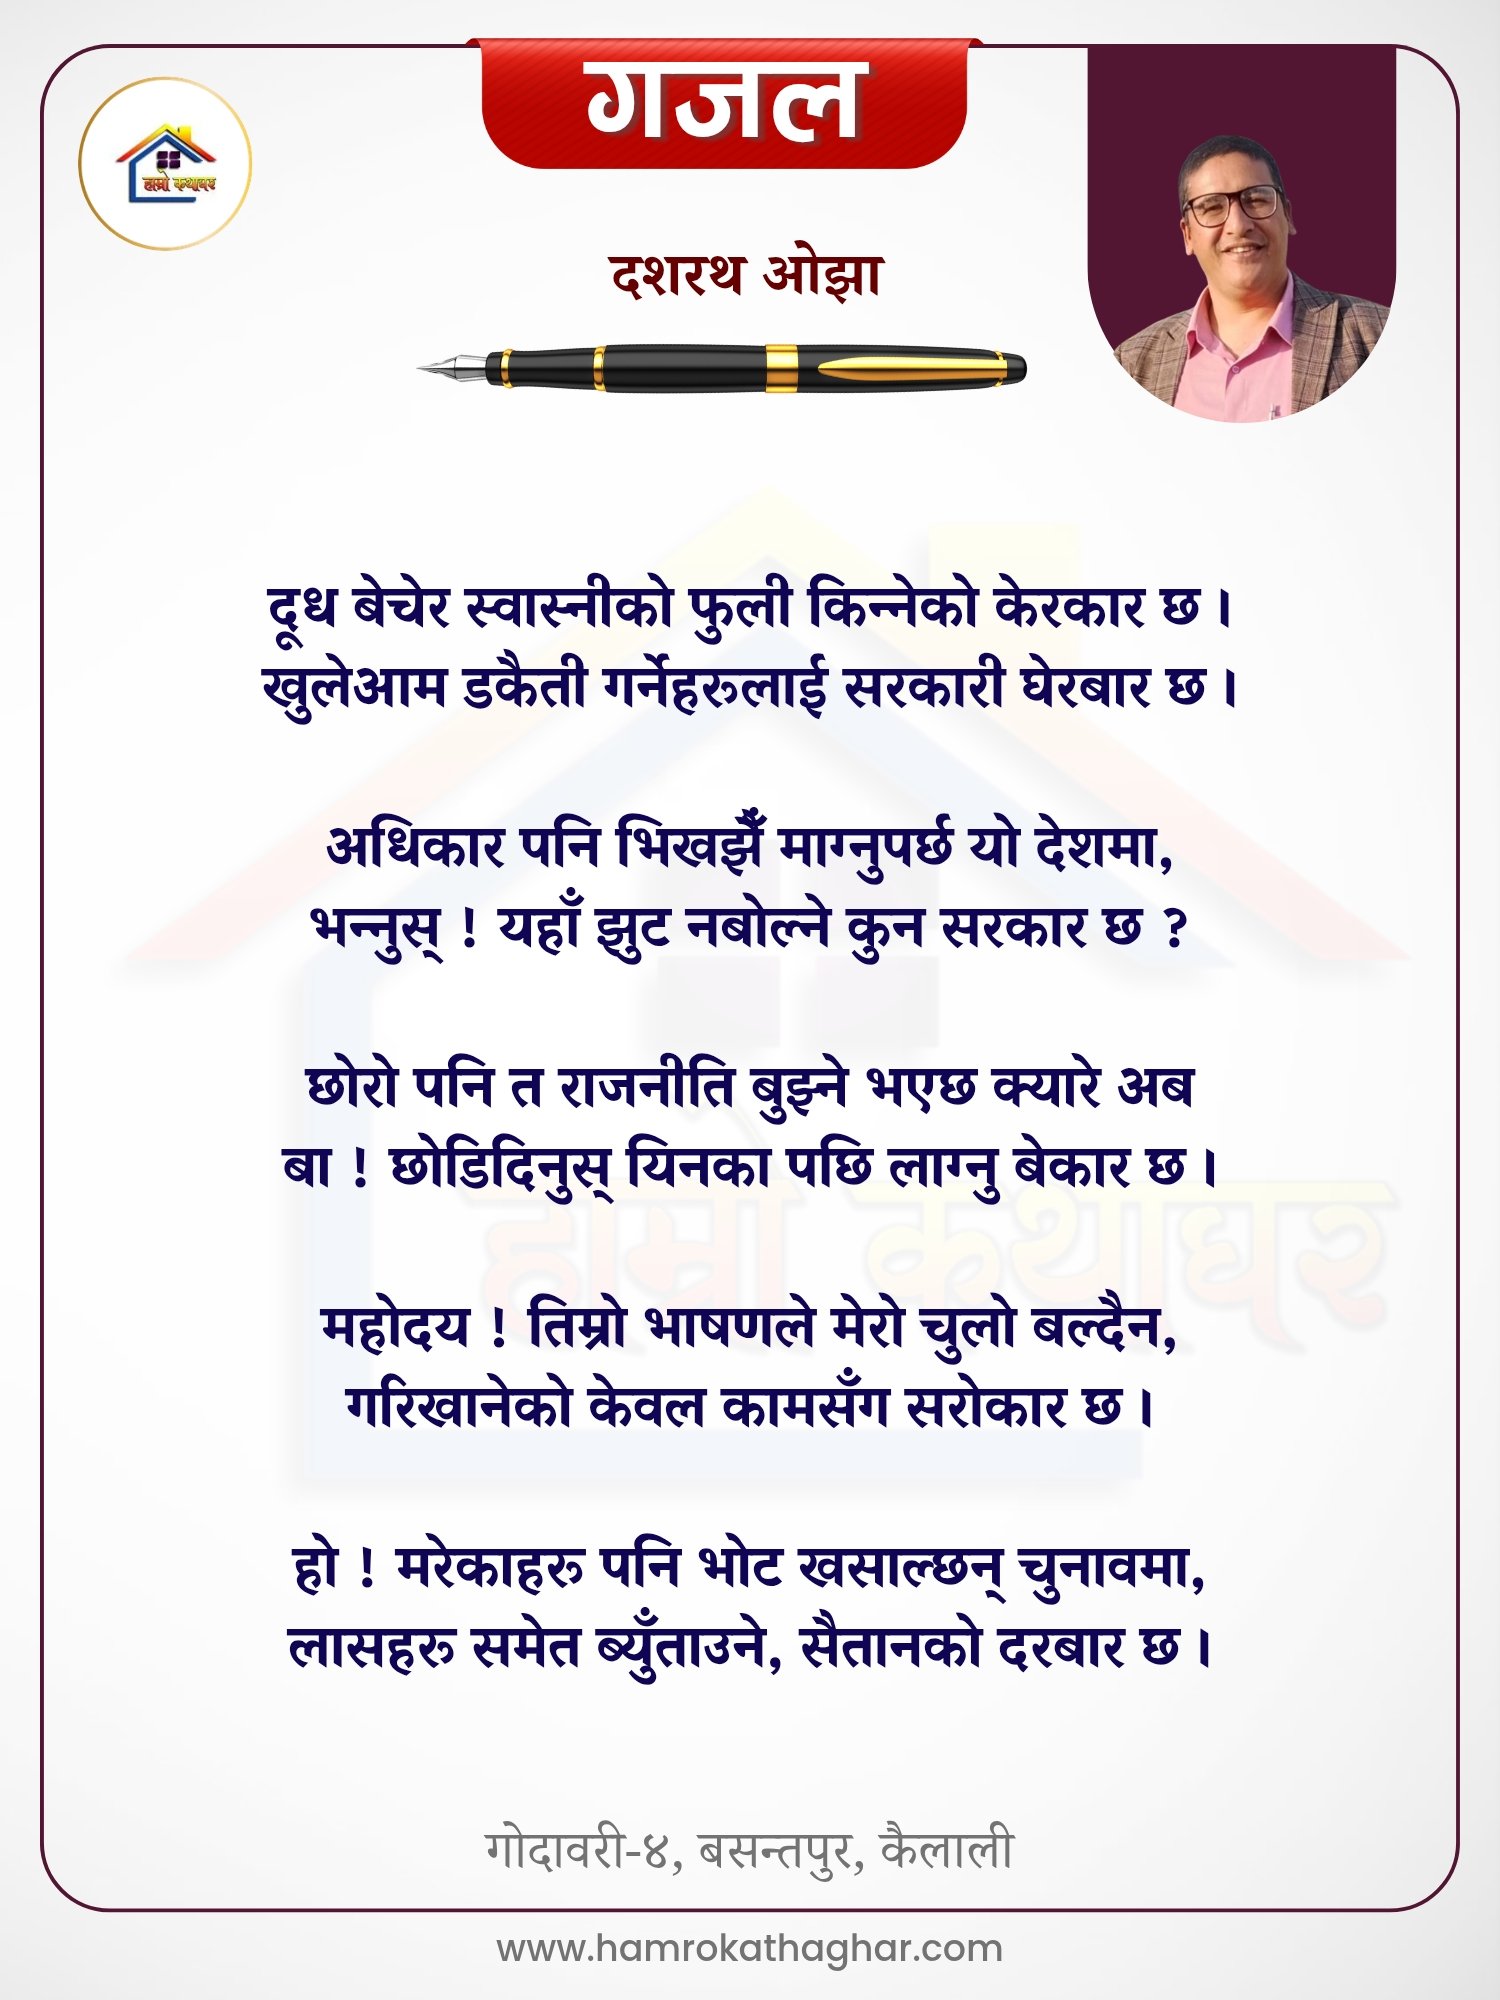 गजल
हाम्रो कथाघर
दशरथ ओझा
दूध बेचेर स्वास्नीको फुली किन्नेको केरकार छ।
खुलेआम डकैती गर्नेहरुलाई सरकारी घेरबार छ।
अधिकार पनि भिखझैँ माग्नुपर्छ यो देशमा,
भन्नुस् ! यहाँ झुट नबोल्ने कुन सरकार छ ?
छोरो पनि त राजनीति बुझ्ने भएछ क्यारे अब
बा ! छोडिदिनुस् यिनका पछि लाग्नु बेकार छ।
महोदय ! तिम्रो भाषणले मेरो चुलो बल्दैन,
गरिखानेको केवल कामसँग सरोकार छ।
हो ! मरेकाहरु पनि भोट खसाल्छन् चुनावमा,
लासहरु समेत ब्युँताउने, सैतानको दरबार छ।
हाम्रो कथाघर
गोदावरी-४, बसन्तपुर, कैलाली
www.hamrokathaghar.com